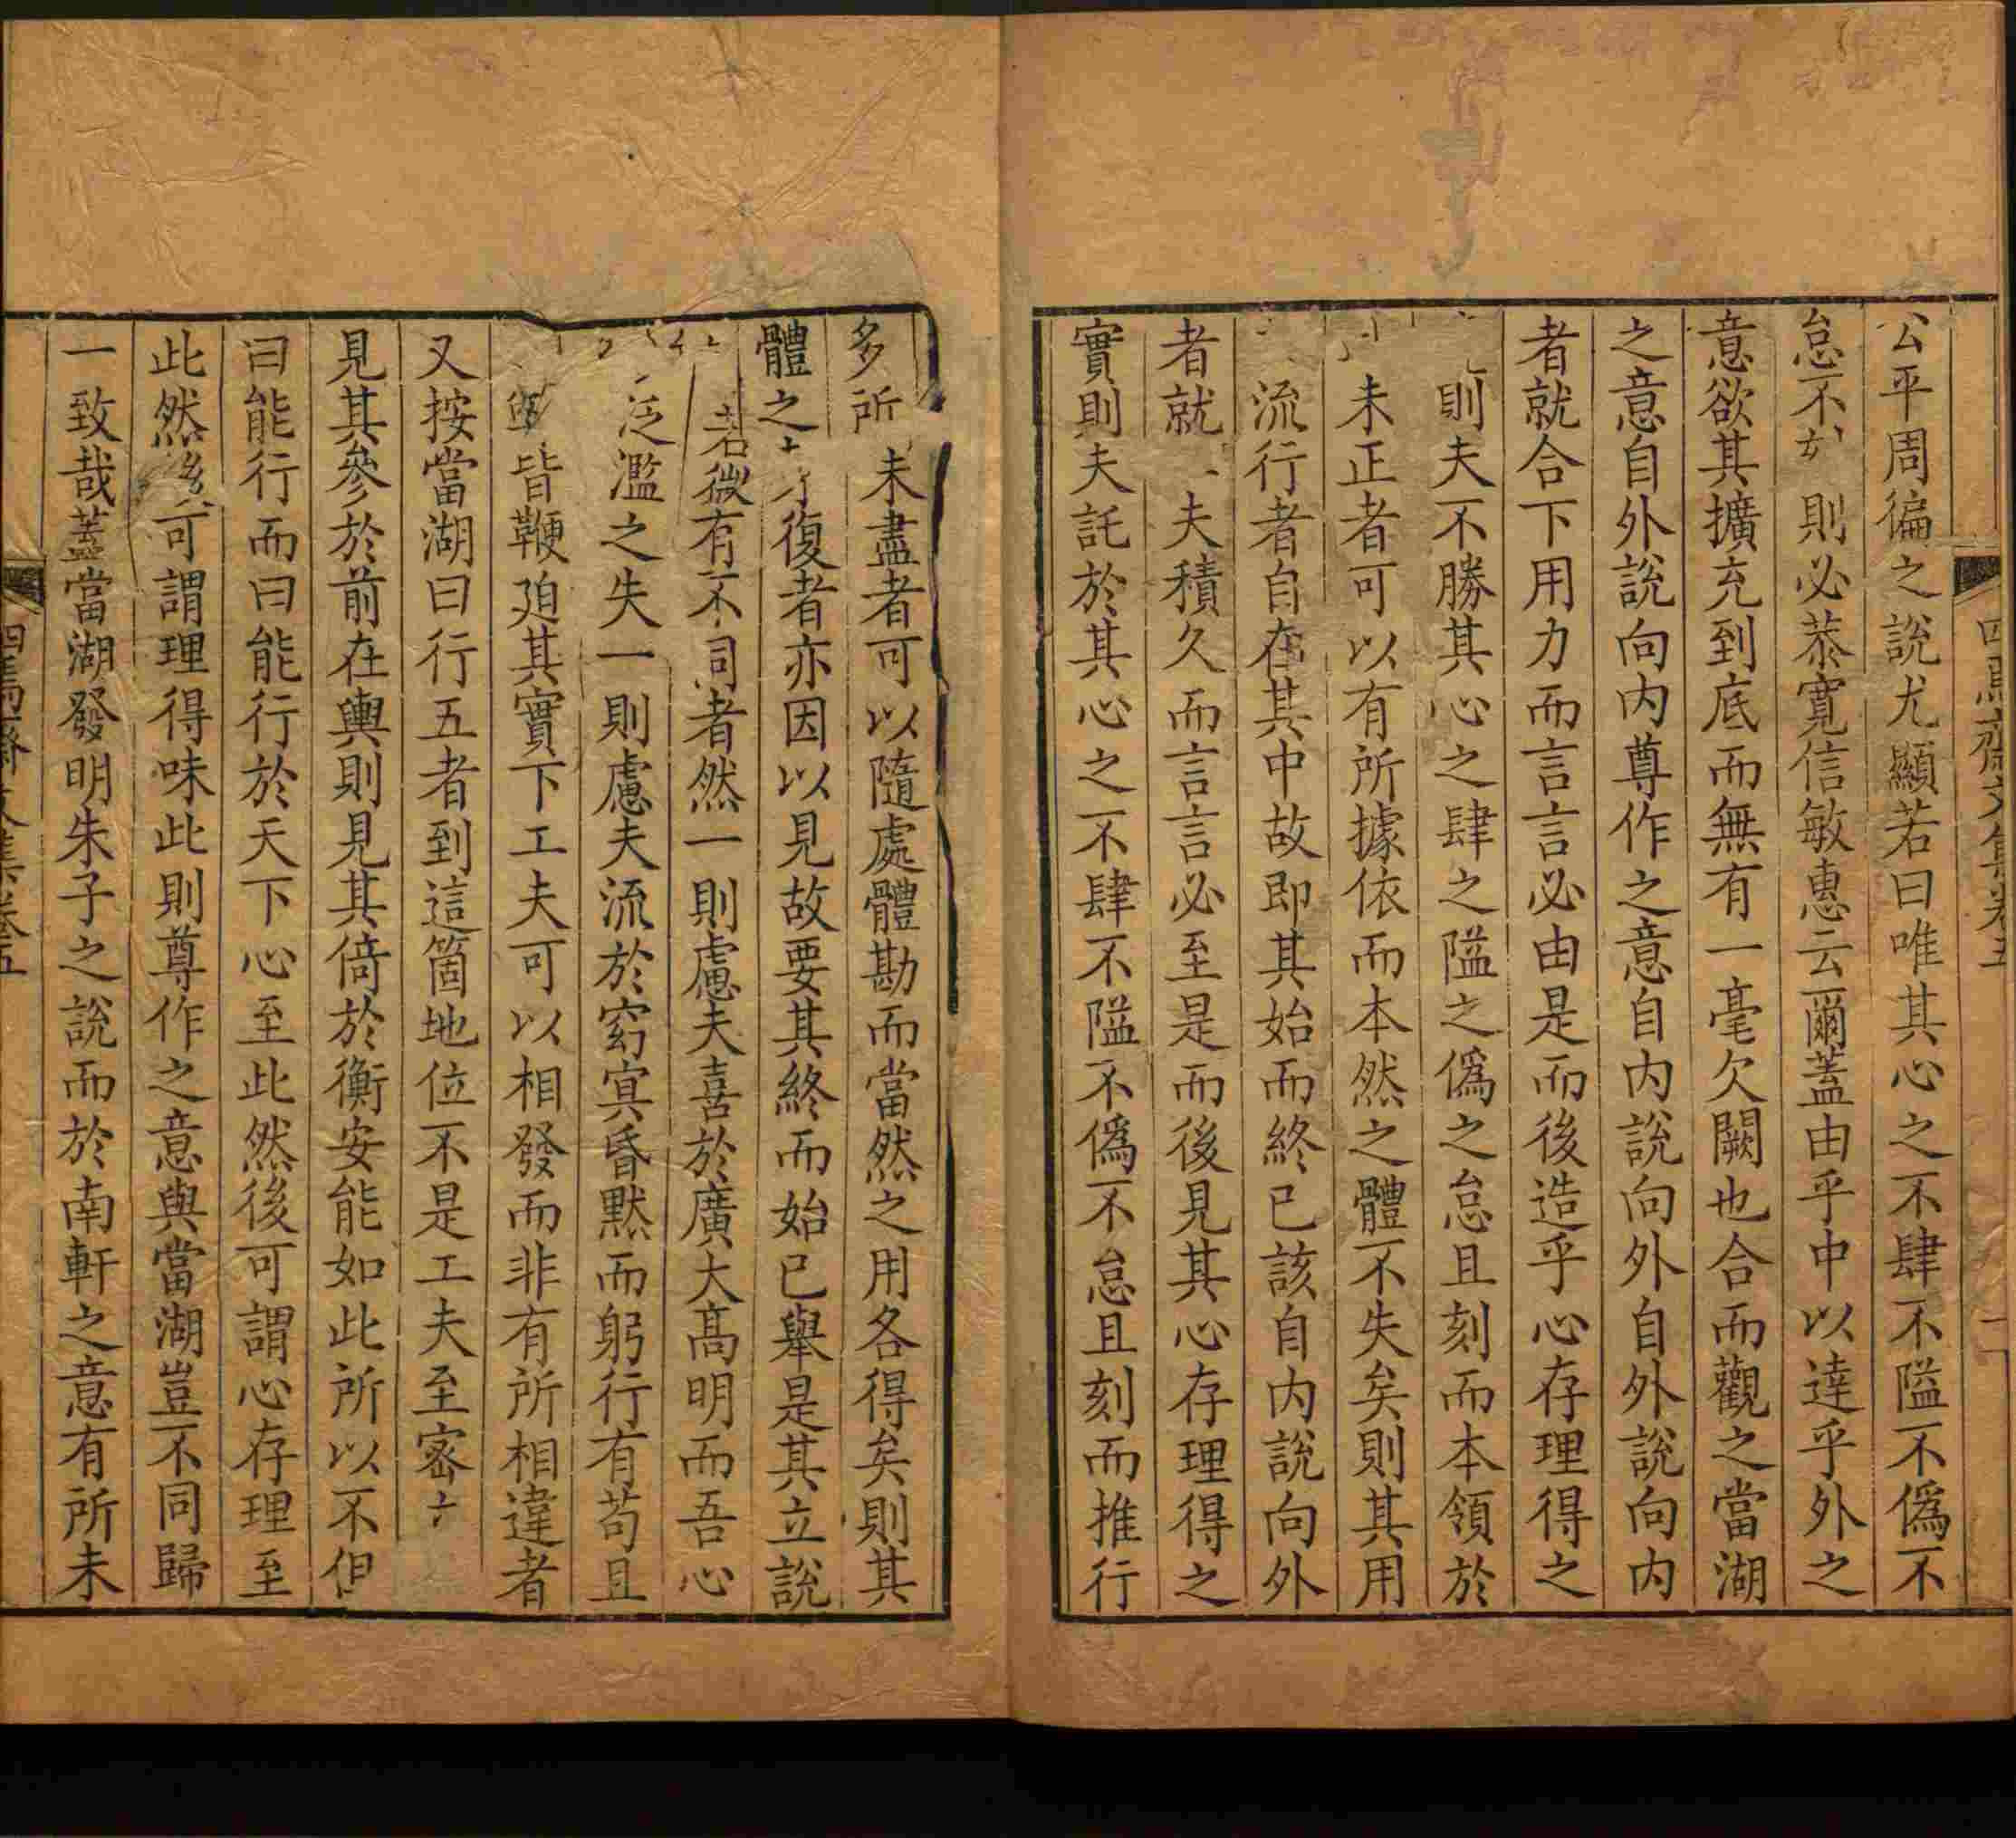 公平周徧之說尤顯若曰唯其心之不肆不隘不偽不
怠不 則必恭寬信敏惠云爾蓋由乎中以達乎外之
意欲其擴充到底而無有一毫欠闕也合而觀之當湖
之意自外說向內尊作之意自內說向外自外說向內
者就合下用力而言言必由是而後造乎心存理得之
則夫不勝其心之肆之隘之偽之怠且刻而本領於
未正者可以有所據依而本然之體不失矣則其用
流行者自在其中故即其始而終已該自內說向外
者就 夫積久而言言必至是而後見其心存理得之
實則夫託於其心之不肆不隘不偽不怠且刻而推行
四焉齋文集卷五
多所未盡者可以隨處體勘而當然之用各得矣則其
體之 復者亦因以見故要其終而始已舉是其立說
若微有不同者然一則慮夫喜於廣大高明而吾心
泛濫之失一則慮夫流於窈冥昏默而躬行有苟且
皆鞭廹其實下工夫可以相發而非有所相違者
又按當湖曰行五者到這箇地位不是工夫至密
見其參於前在輿則見其倚於衡安能如此所以不但
曰能行而曰能行於天下心至此然後可謂心存理至
此然後可謂理得味此則尊作之意與當湖豈不同歸
一致哉蓋當湖發明朱子之說而於南軒之意有所未
四焉齋文集卷五